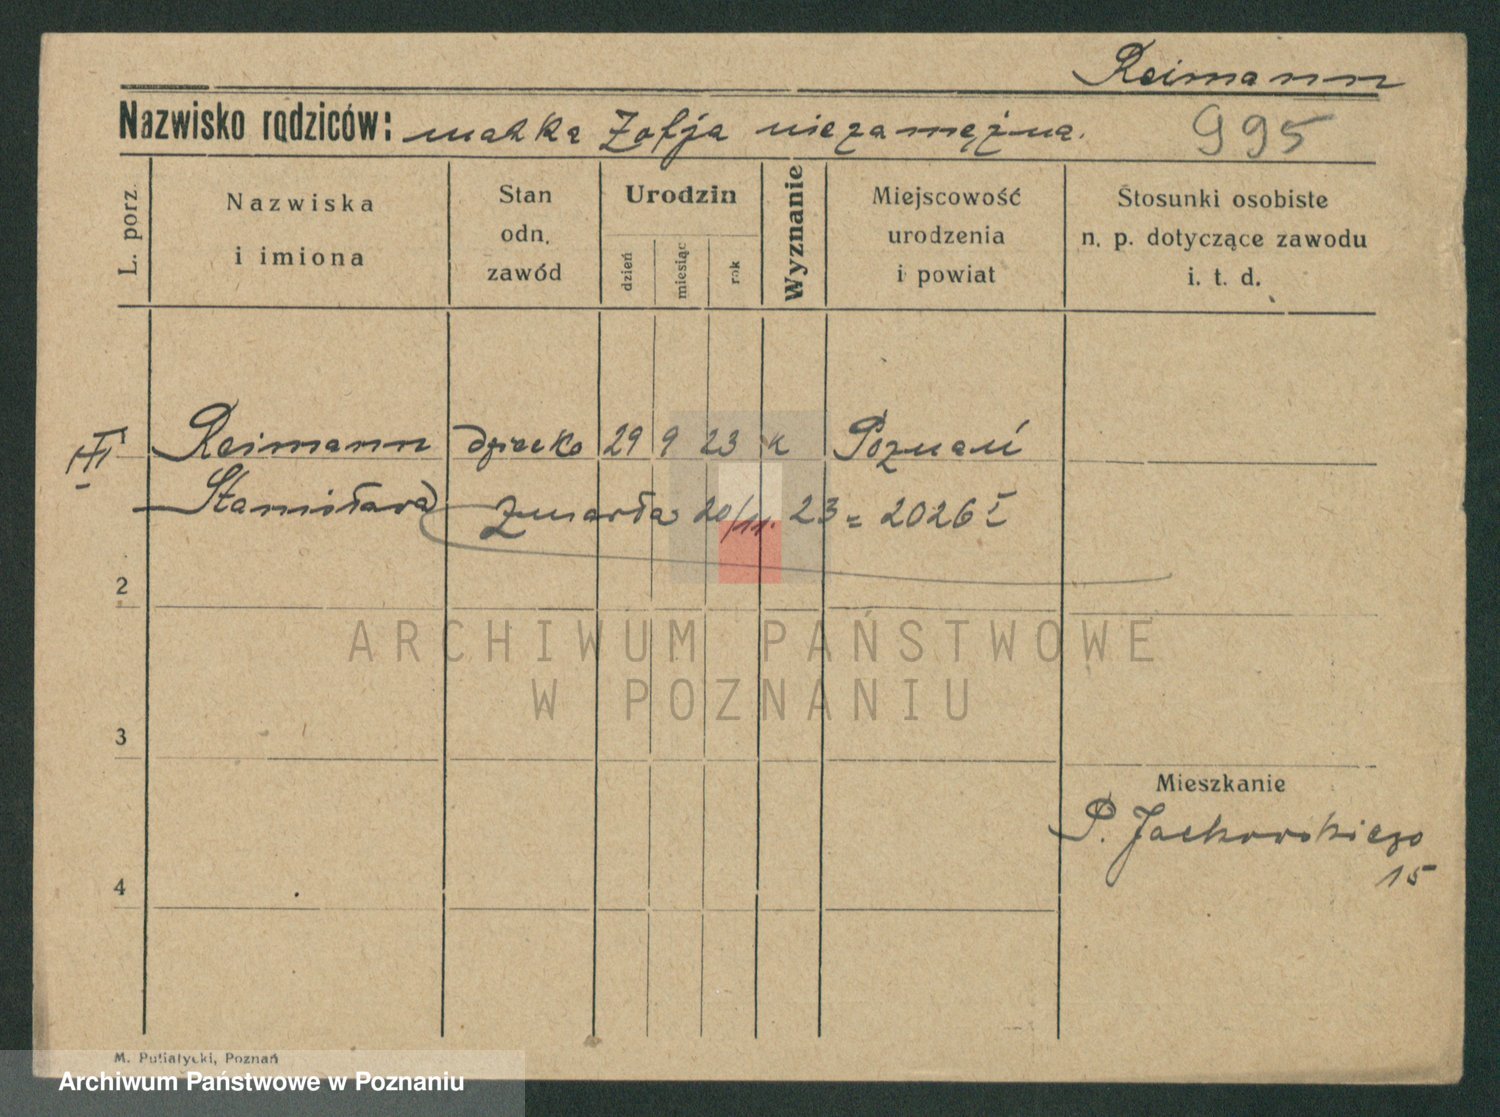 Reimann
Nazwisko rodziców: matka Zofja niezamężna. 995
L. porz.
Nazwiska
i imiona
Stan
odn.
zawód
Urodzin
dzień
miesiąc
rok
Wyznanie
Miejscowość
urodzenia
i powiat
Stosunki osobiste
n. p. dotyczące zawodu
i. t. d.
III Reimann dziecko 29 9 23 k Poznań
Stanisława zmarła 20/11. 23 = 2026 I
2
ARCHIWUM PAŃSTWOWE
W POZNANIU
3
Mieszkanie
P. Jackowskiego
15
4
M. Putiatycki, Poznań
Archiwum Państwowe w Poznaniu